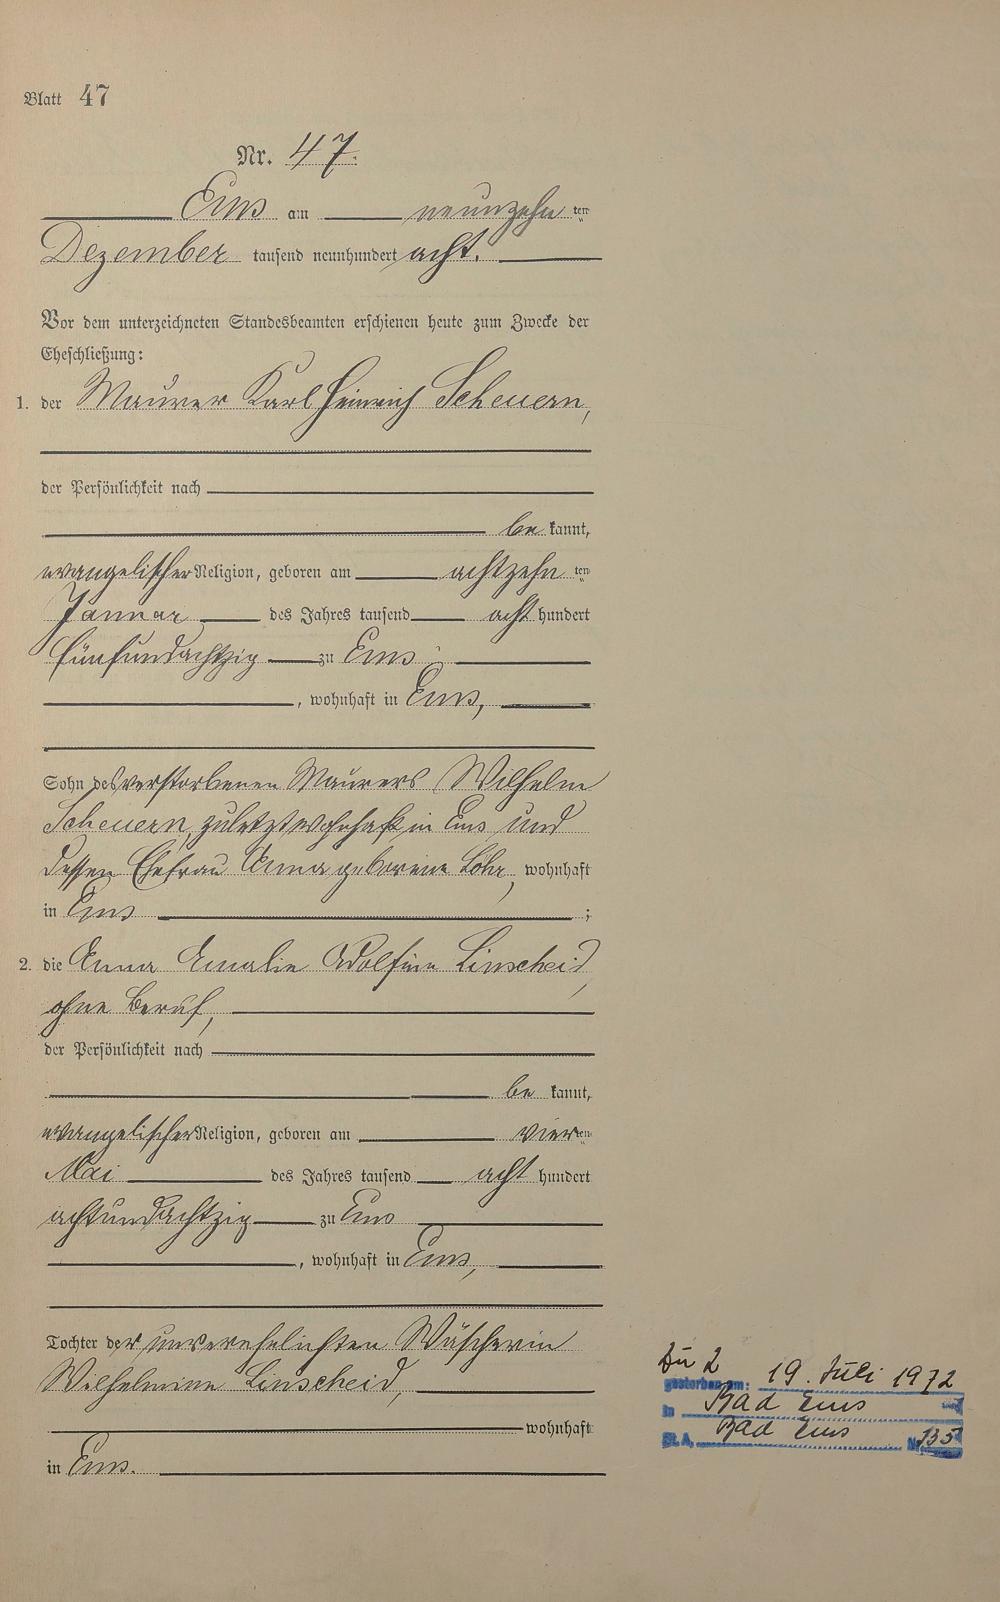 Blatt 47
Nr. 47.
Ems am neunzehn ten
Dezember tausend neunhundert acht.
Vor dem unterzeichneten Standesbeamten erschienen heute zum Zwecke der
Eheschließung:
1. der Maurer Karl Heinrich Scheuern,
der Persönlichkeit nach
be kannt,
evangelischer Religion, geboren am achtzehn ten
Januar des Jahres tausend acht hundert
fünfundachtzig zu Ems
, wohnhaft in Ems,
Sohn des verstorbenen Maurers Wilhelm
Scheuern, zuletzt wohnhaft in Ems und
dessen Ehefrau Anna geborene Löhr, wohnhaft
in Ems ;
2. die Anna Emalie Adolfine Linscheid,
ohne Beruf,
der Persönlichkeit nach
be kannt,
evangelischer Religion, geboren am vier ten
Mai des Jahres tausend acht hundert
achtundachtzig zu Ems
, wohnhaft in Ems,
Tochter der unverehelichten Wäscherin
Wilhelmine Linscheid,
wohnhaft
in Ems.
Zu 2
gestorben am: 19. Juli 1972
in Bad Ems
St. A. Bad Ems Nr. 135